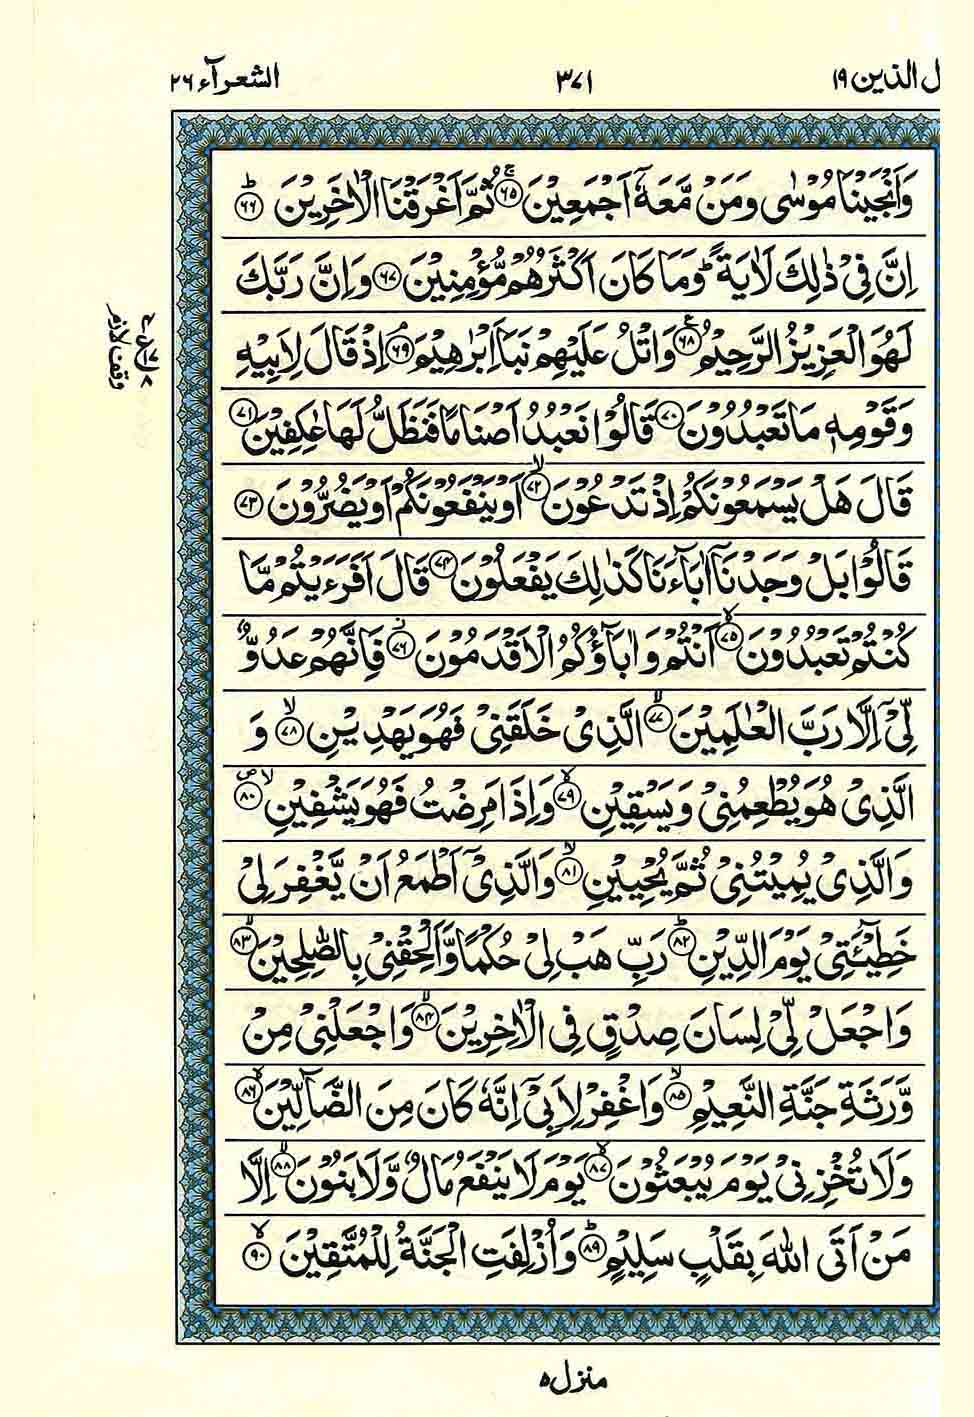 ل الذين ١٩
٣٧١
الشعرآء ٢٦
وَاَنْجَيْنَا مُوْسٰى وَمَنْ مَّعَهٗٓ اَجْمَعِيْنَ ۚ‏﴿۶۵﴾ ثُمَّ اَغْرَقْنَا الْاٰخَرِيْنَ ؕ‏﴿۶۶﴾
اِنَّ فِىْ ذٰلِكَ لَاٰيَةً ؕ وَمَا كَانَ اَكْثَرُهُمْ مُّؤْمِنِيْنَ ﴿۶۷﴾ وَاِنَّ رَبَّكَ
لَهُوَ الْعَزِيْزُ الرَّحِيْمُ ﴿۶۸﴾ وَاتْلُ عَلَيْهِمْ نَبَاَ اِبْرٰهِيْمَ ۘ ﴿۶۹﴾ اِذْ قَالَ لِاَبِيْهِ
وَقَوْمِهٖ مَا تَعْبُدُوْنَ ﴿۷۰﴾ قَالُوْا نَعْبُدُ اَصْنَامًا فَنَظَلُّ لَهَا عٰكِفِيْنَ ﴿۷۱﴾
قَالَ هَلْ يَسْمَعُوْنَكُمْ اِذْ تَدْعُوْنَ ۙ ﴿۷۲﴾ اَوْ يَنْفَعُوْنَكُمْ اَوْ يَضُرُّوْنَ ﴿۷۳﴾
قَالُوْا بَلْ وَجَدْنَاۤ اٰبَآءَنَا كَذٰلِكَ يَفْعَلُوْنَ ﴿۷۴﴾ قَالَ اَفَرَءَيْتُمْ مَّا
كُنْتُمْ تَعْبُدُوْنَ ۙ ﴿۷۵﴾ اَنْتُمْ وَاٰبَآؤُكُمُ الْاَقْدَمُوْنَ ۖ ﴿۷۶﴾ فَاِنَّهُمْ عَدُوٌّ
لِّىْۤ اِلَّا رَبَّ الْعٰلَمِيْنَ ۙ ﴿۷۷﴾ الَّذِىْ خَلَقَنِىْ فَهُوَ يَهْدِيْنِ ۙ ﴿۷۸﴾ وَ
الَّذِىْ هُوَ يُطْعِمُنِىْ وَيَسْقِيْنِ ۙ ﴿۷۹﴾ وَاِذَا مَرِضْتُ فَهُوَ يَشْفِيْنِ ۙ ﴿۸۰﴾
وَالَّذِىْ يُمِيْتُنِىْ ثُمَّ يُحْيِيْنِ ۙ ﴿۸۱﴾ وَالَّذِىْۤ اَطْمَعُ اَنْ يَّغْفِرَ لِىْ
خَطِيْٓئَتِىْ يَوْمَ الدِّيْنِ ؕ ﴿۸۲﴾ رَبِّ هَبْ لِىْ حُكْمًا وَّاَلْحِقْنِىْ بِالصّٰلِحِيْنَ ۙ ﴿۸۳﴾
وَاجْعَلْ لِّىْ لِسَانَ صِدْقٍ فِى الْاٰخِرِيْنَ ۙ ﴿۸۴﴾ وَاجْعَلْنِىْ مِنْ
وَّرَثَةِ جَنَّةِ النَّعِيْمِ ۙ ﴿۸۵﴾ وَاغْفِرْ لِاَبِىْۤ اِنَّهٗ كَانَ مِنَ الضَّآلِّيْنَ ۙ ﴿۸۶﴾
وَلَا تُخْزِنِىْ يَوْمَ يُبْعَثُوْنَ ۙ ﴿۸۷﴾ يَوْمَ لَا يَنْفَعُ مَالٌ وَّلَا بَنُوْنَ ۙ ﴿۸۸﴾ اِلَّا
مَنْ اَتَى اللّٰهَ بِقَلْبٍ سَلِيْمٍ ؕ ﴿۸۹﴾ وَاُزْلِفَتِ الْجَنَّةُ لِلْمُتَّقِيْنَ ۙ ﴿۹۰﴾
وقف لازم
منزل ٥